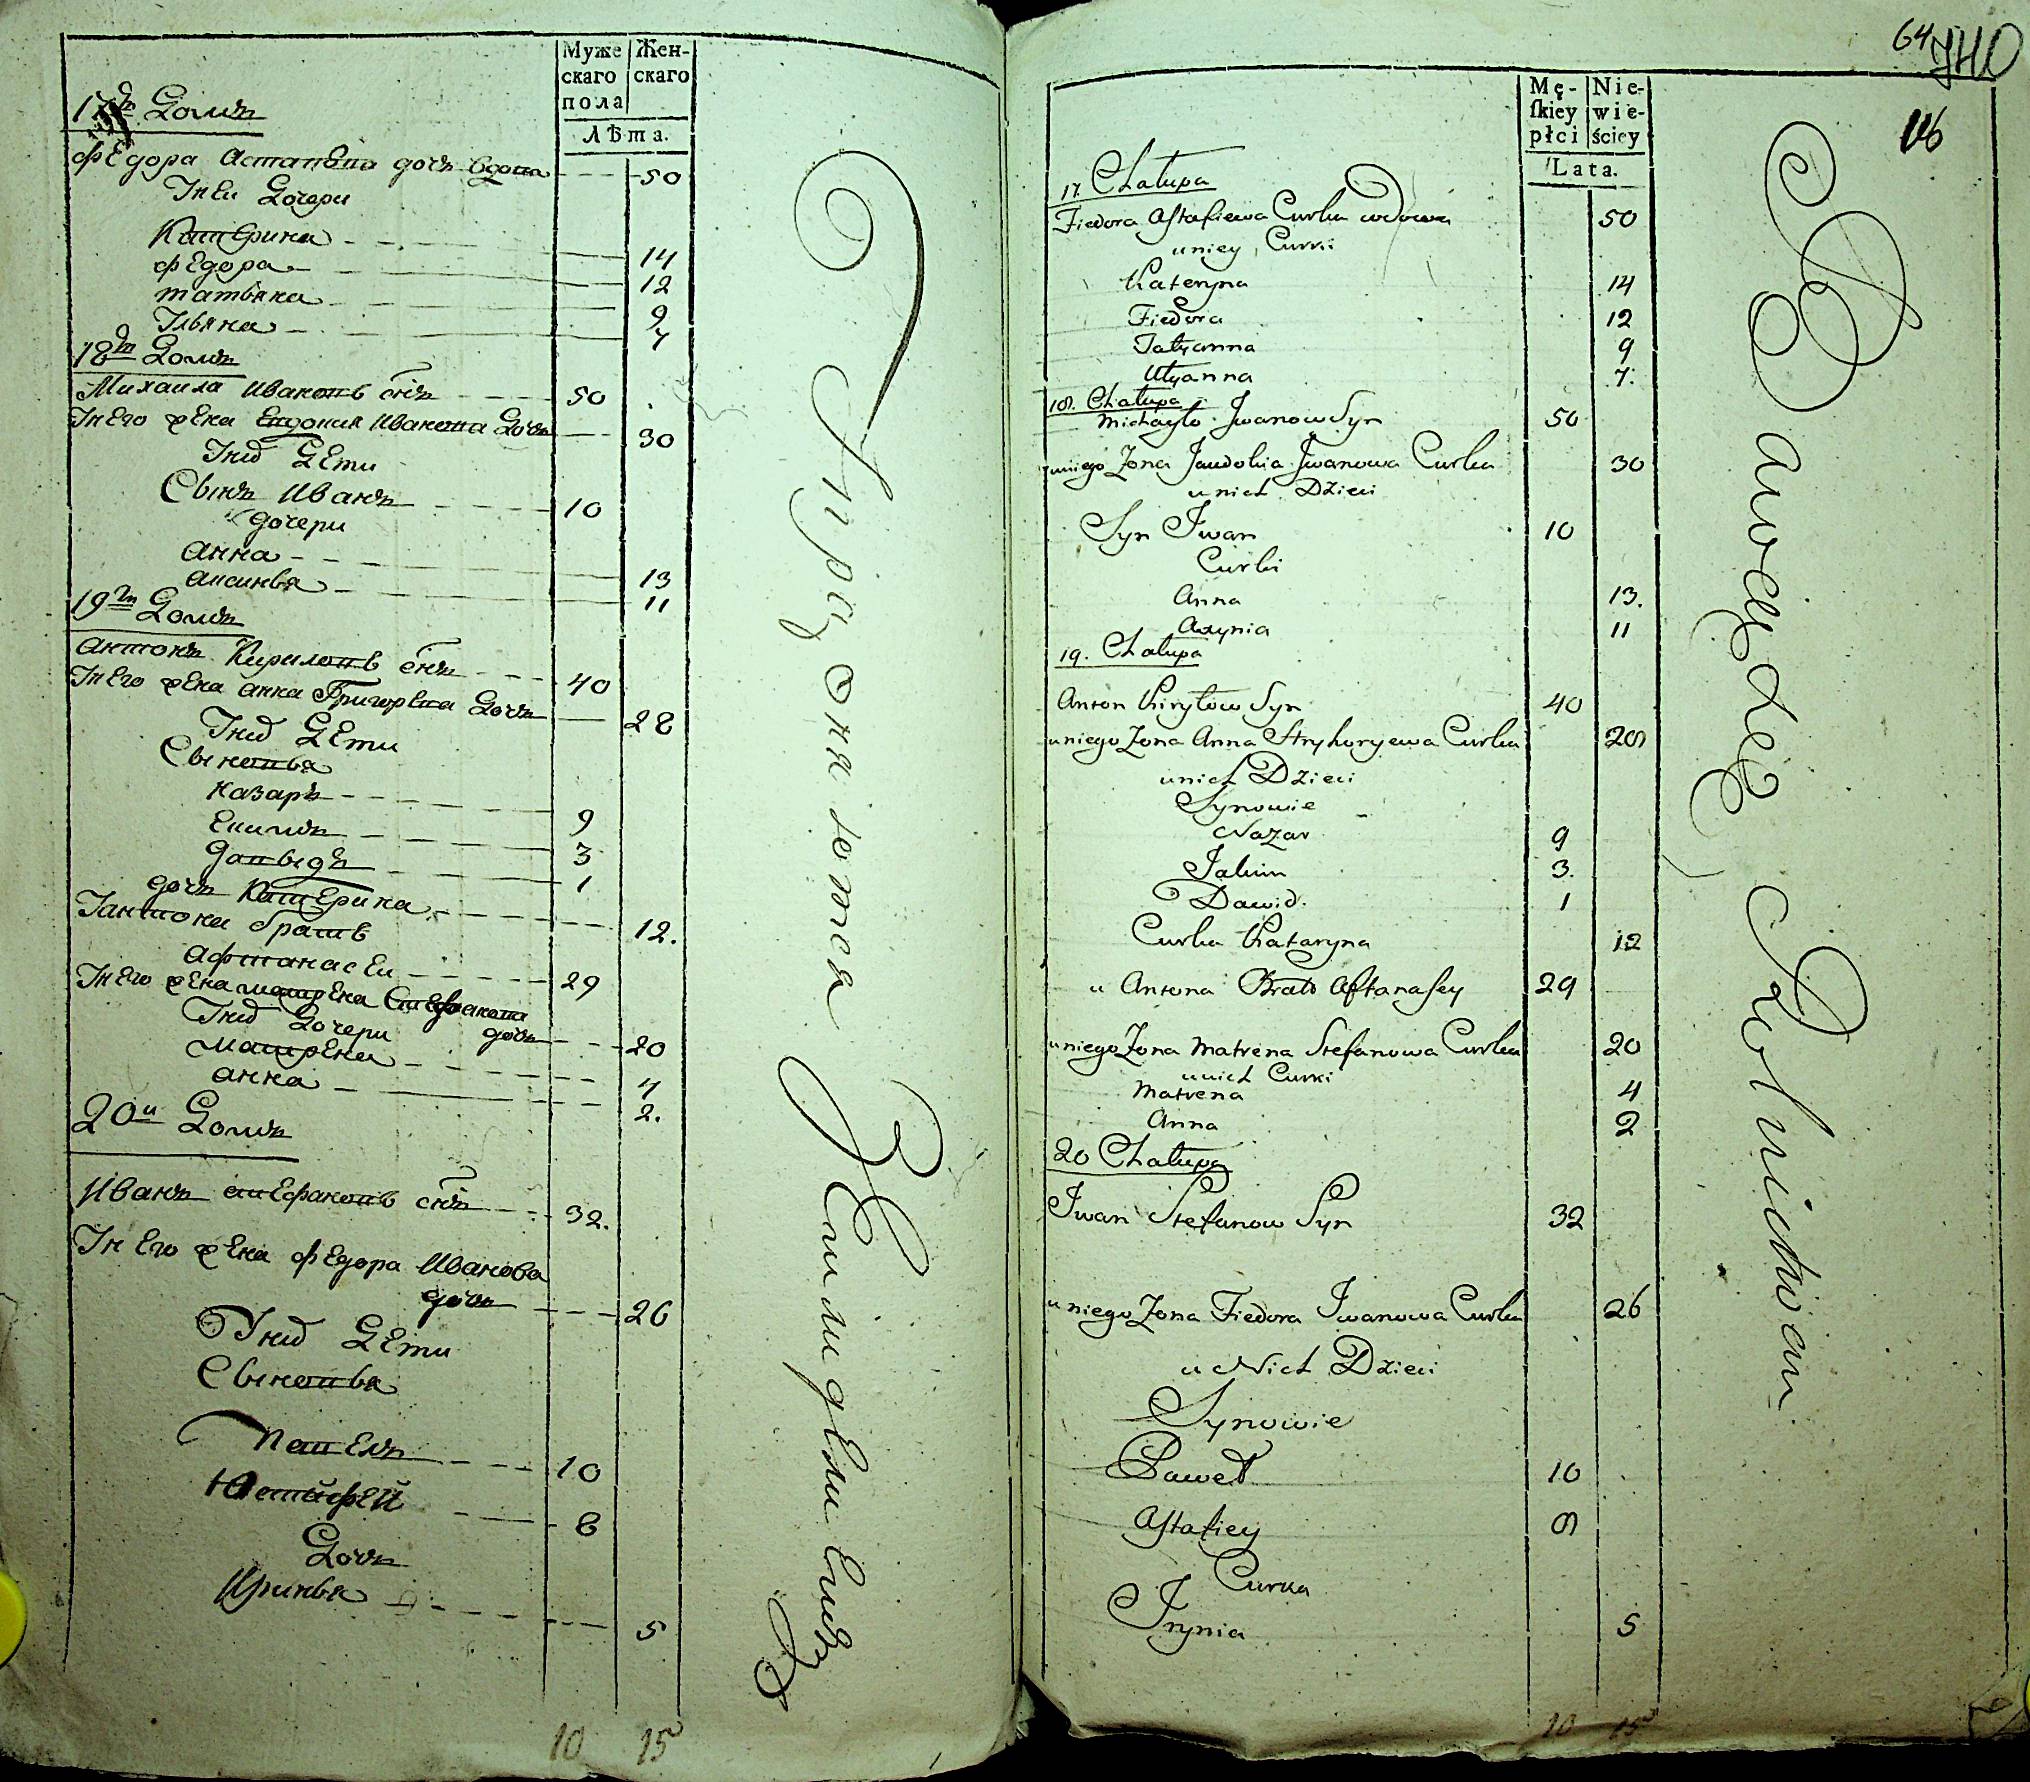 Муже
скаго
пола
Жен-
скаго
Лѣта.
17й Домъ
Федора Астапѣва дочь вдова 50
Унеи Дочери
Катерина 14
Федора 12
татьяна 9
Ульяна 7
18й Домъ
Михаила Ивановъ снъ 50
Унего жена Евдокия Иванова Дочь 30
Уних Дети
Сынъ Иванъ 10
дочери
анна 13
аксинья 11
19й Домъ
антонъ Кириловъ снъ 40
Унего жена анна Григорева Дочь 28
Уних Дети
Сыновья
назаръ 9
Екимъ 3
давыдъ 1
дочь Катерина 12.
Уантона братъ
афтанасеи 29
Унего жена матрена Стефанова
дочь 20
Уних Дочери
матрена 4
анна 2.
20й Домъ
Иванъ стефановъ снъ 32.
Ун его жена федора Иванова
дочь 26
Уних Дети
Сыновья
павелъ 10
8
Дочь
Иринья 5
10 15
Упражняются Земледелием
64
116
Mę-
skiey
płci
Nie-
wie-
ściey
Lata.
17. Chałupa
Fiedora Astafiewa Curka wdowa 50
uniey Curki
Kateryna 14
Fiedora 12
Tatyanna 9
Ulyanna 7.
18. Chałupa
Michayło Jwanow Syn 50
uniego Zona Jawdokia Jwanowa Curka 30
unich Dzieci
Syn Jwan 10
Curki
Anna 13.
Axynia 11
19. Chałupa
Anton Kiryłow Syn 40
uniego Zona Anna Hryhoryewa Curka 28
unich Dzieci
Synowie
Nazar 9
Jakim 3.
Dawid. 1
Curka Kataryna 12
u Antona Brat Aftanasey 29
uniego Zona Matrena Stefanowa Curka 20
unich Curki
Matrena 4
Anna 2
20 Chałupa
Jwan Stefanow Syn 32
u niego Zona Fiedora Jwanowa Curka 26
u Nich Dzieci
Synowie
Paweł 10
Astafiey 8
Curka
Jrynia 5
10 15
Rolnictwem